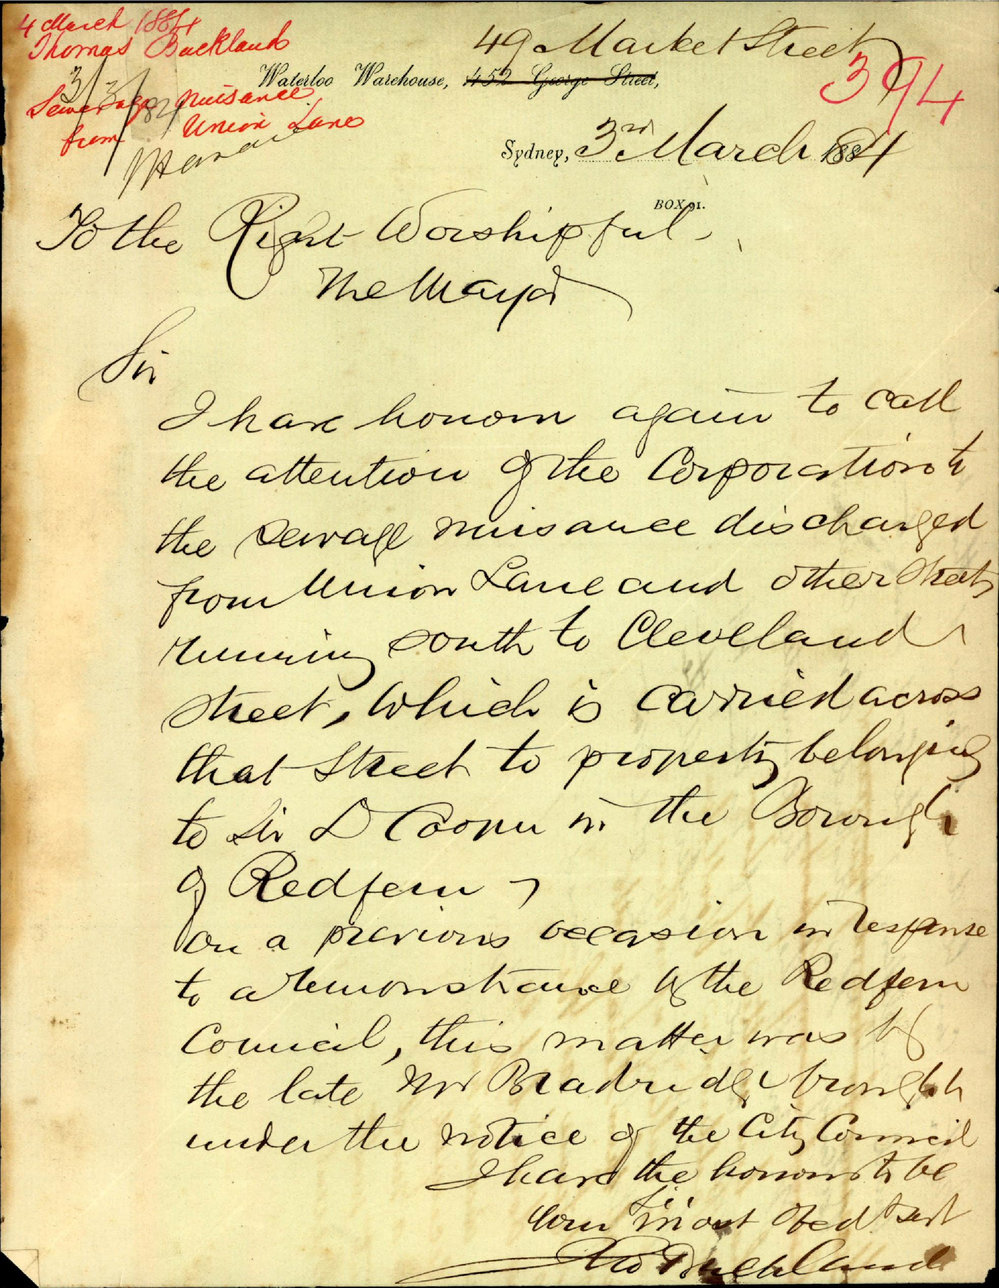 4 March 1884
Thomas Buckland
3/3/84
Sewerage Nuisance
from Union Lane
49 Market Street
Waterloo Warehouse, 452 George Street,
394
Sydney, 3rd March 1884
BOX 91.
To the Right Worshipful
The Mayor
Sir
I have honour again to call
the attention of the Corporation to
the sewage nuisance discharged
from Union Lane and other Streets
running south to Cleveland
Street, which is carried across
that Street to property belonging
to Sir D Cooper in the Borough
of Redfern,
On a previous occasion in response
to a remonstrance by the Redfern
Council, this matter was by
the late Mr Bradridge brought
under the notice of the City Council
I have the honour to be
Sir
Your most obedt sert
Thos Buckland